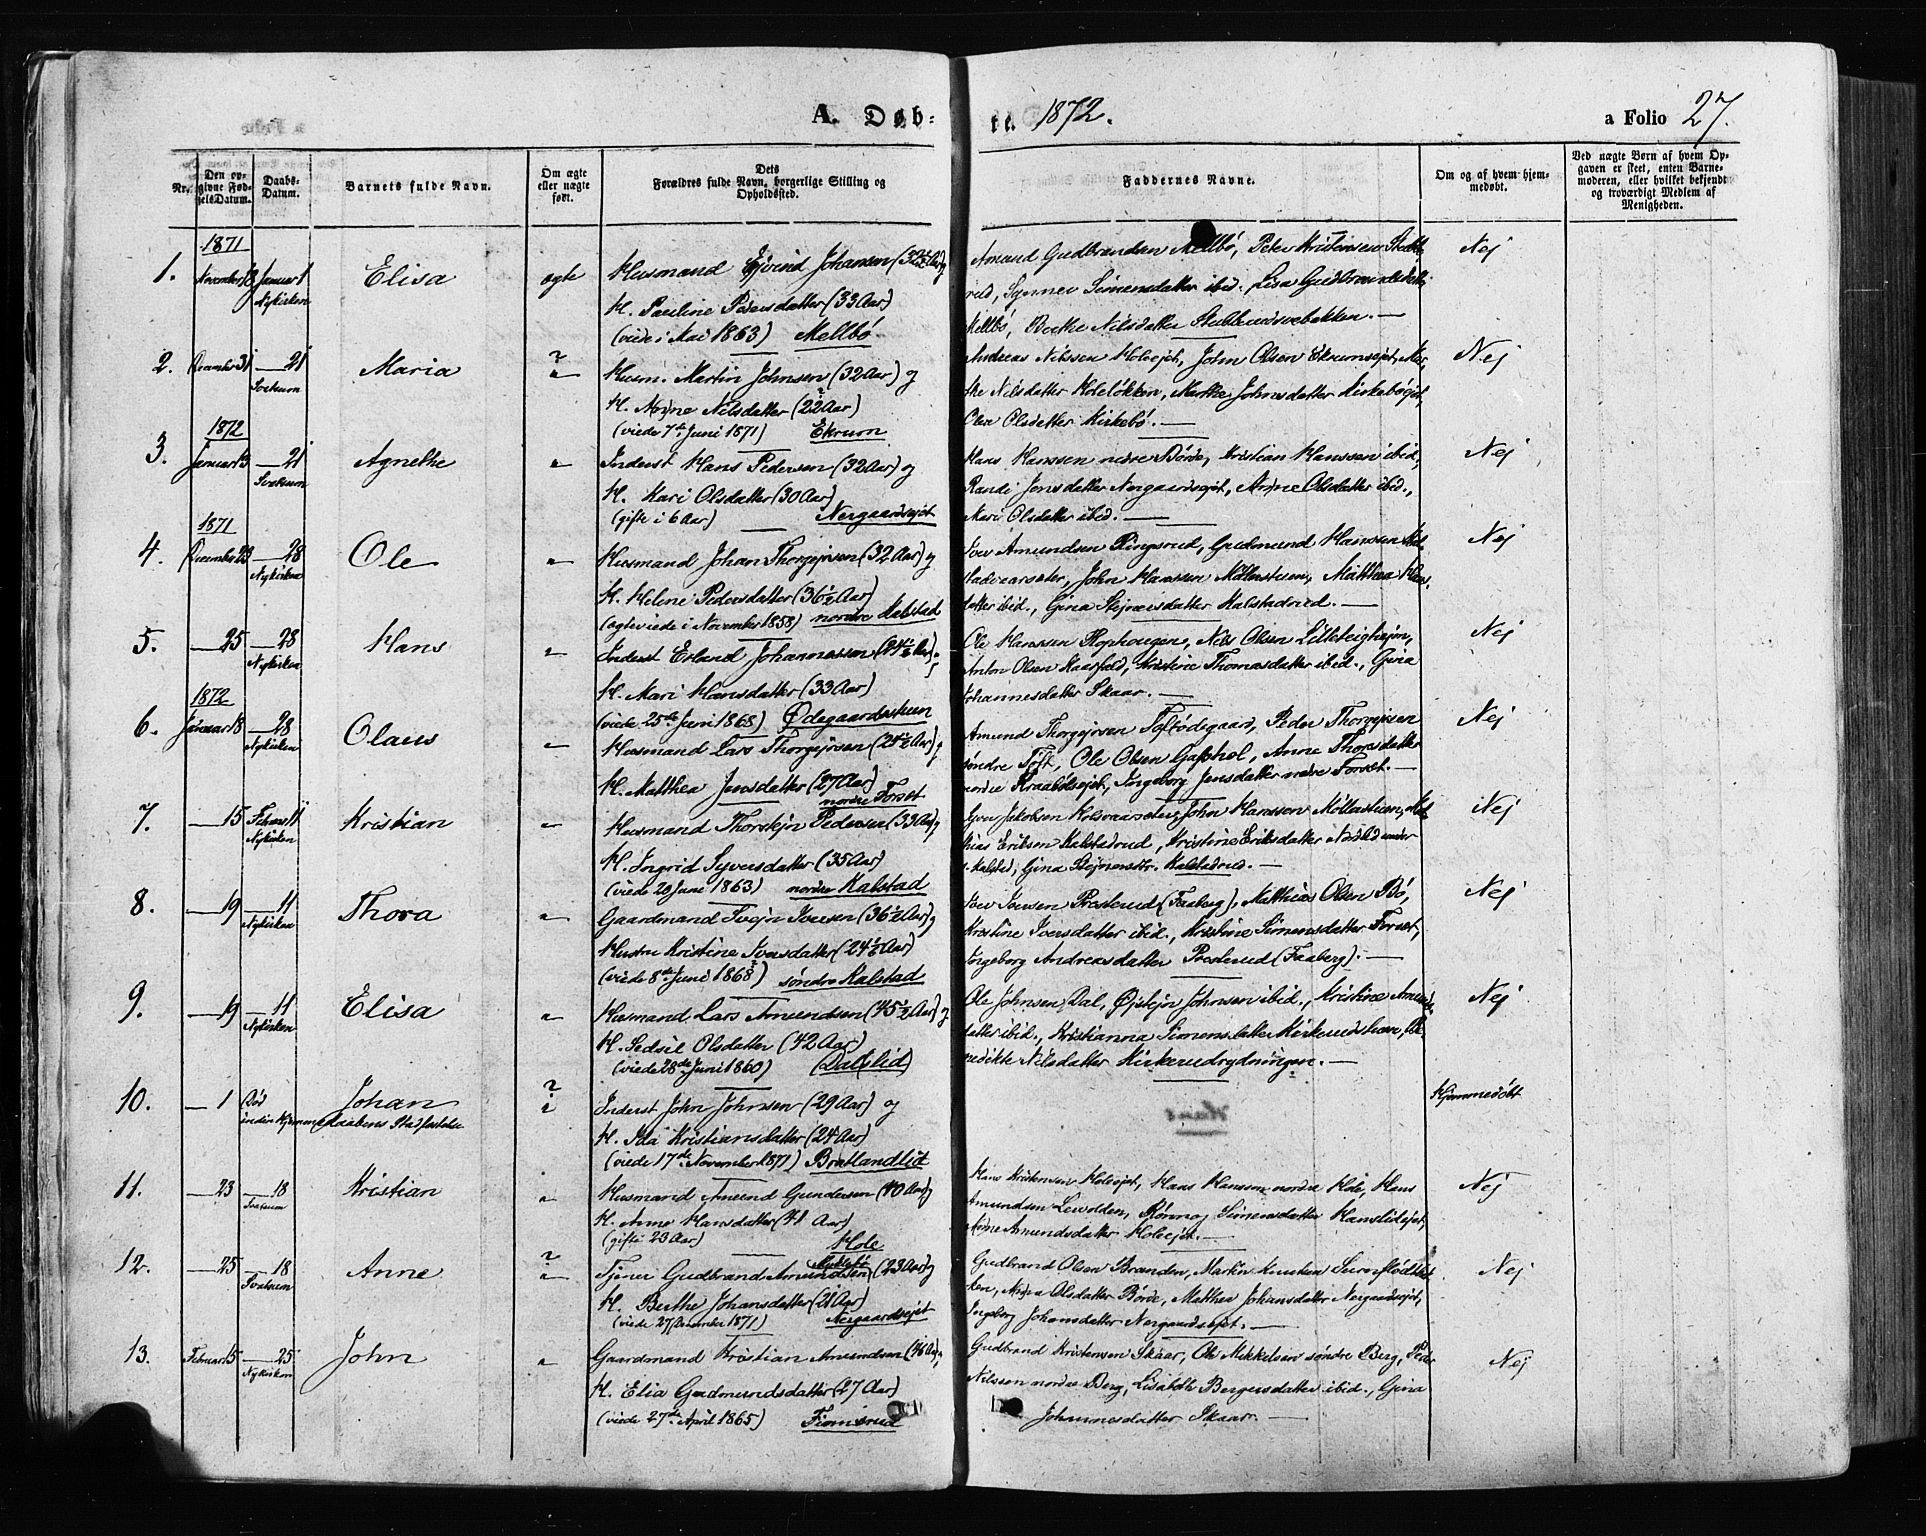 A. Døb-
te. 1872.
a Folio 27.
Nr.
Den op-
givne Fød-
selsDatum.
Daabs-
Datum.
Barnets fulde Navn.
Om ægte
eller nægte
født.
Dets
Forældres fulde Navn, borgerlige Stilling og
Opholdssted.
Faddernes Navne.
Om og af hvem hjem-
medøbt.
Ved nægte Børn af hvem Op-
gaven er skeet, enten Barne-
moderen, eller hvilket bekjendt
og troværdigt Medlem af
Menigheden.
1871
1. November 18 Januar 1 Elisa ægte Husmand Ejvind Johansen (32½ Aar) og
Nykirken
H. Pauline Pedersdatter (33 Aar)
(viede i Mai 1863) Mellbö
Amund Gudbrandsen Mellbö, Peter Kristensen
Synnev Simensdatter ibid. Lisa Gudbrandsdatter
Mellbö, Berthe Nilsdatter
Nej
2. December 31 — 21 Maria " Husm. Martin Johnsen (32 Aar) og
Svatsum
H. Anne Nilsdatter (22 Aar)
(viede 7de Juni 1871) Ekrum
Andreas Nilssen Holsejet, John Olsen Ekrumsejet, Mar-
the Nilsdatter Holeløkken, Marthe Johnsdatter Kirkebøejet,
Olea Olsdatter Kirkebö. —
Nej
1872
3. Januar 3 — 21 Agnethe " Inderst Hans Pedersen (32 Aar) og
Svatsum
H. Kari Olsdatter (30 Aar)
(gifte i 6 Aar) Nergaardsejet
Hans Hanssen nedre Börde, Kristian Hanssen ibid.,
Randi Jensdatter Nergaardsejet, Anne Olsdatter ibid.,
Mari Olsdatter ibid. —
Nej
1871
4. December 23 — 28 Ole " Husmand Johan Thorgejrsen (32 Aar) og
Nykirken
H. Helene Pedersdatter (36½ Aar)
(ægteviede i November 1858) nordre Kalstad
Iver Amundsen Ringsrud, Gudmund Hanssen Kal-
John Hanssen Möllerstuen, Matthea Hans-
datter ibid., Gina Stejnersdatter Kalstadrud. —
Nej
5. — 25 — 28 Hans " Inderst Erland Johannessen (24½ Aar) og
Nykirken
H. Mari Hansdatter (33 Aar)
(viede 25de Juni 1868) Ødegaardsstuen
Ole Hanssen Hophaugen, Nils Olsen
Anton Olsen Kaarfald, Kristine Thomasdatter ibid., Gina
Johannesdatter Skaar. —
Nej
1872
6. Januar 18 — 28 Olaus " Husmand Lars Thorgejrsen (24½ Aar) og
Nykirken
H. Matthea Jensdatter (27 Aar)
nordre Forset
Amund Thorgejrsen Toftödegaard, Peder Thorgejrsen
søndre Toft, Ole Olsen Gaphol, Anne Thorsdatter
nordre Kraabölsejet, Ingeborg Jensdatter nedre Forset. —
Nej
7. — 15 Februar 11 Kristian " Husmand Thorstejn Pedersen (33 Aar) og
Nykirken
H. Ingrid Syversdatter (35 Aar)
(viede 20 Juni 1863) nordre Kalstad
John Hanssen Möllerstuen, Mat-
hias Eriksen Kalstadrud, Kristine Eriksdatter
Kalstad, Gina Stejnersdtr. Kalstadrud. —
Nej
8. — 19 — 11 Thora " Gaardmand Svejn Iversen (36½ Aar) og
Nykirken
Hustru Kristine Iversdatter (24½ Aar)
(viede 8de Juni 1868) søndre Kalstad
Iver Iversen Presterud (Faaberg), Matthias Olsen Bö,
Kristine Iversdatter ibid., Kristine Simensdatter Forset,
Ingeborg Andreasdatter Presterud (Faaberg). —
Nej
9. — 19 — 11 Elisa " Husmand Lars Amundsen (45½ Aar) og
Nykirken
H. Sedsil Olsdatter (42 Aar)
(viede 28de Juni 1860) (Dalslid)
Ole Johnsen Dal, Øistejn Johnsen ibid., Kristine Amunds-
datter ibid., Kristianna Simensdatter Kirkerudshaven, Be-
nedikte Nilsdatter Kirkerudrydningen. —
Nej
10. — 1 Död Johan " Inderst John Johnsen (29 Aar) og
inden Hjemmedaabens Stadfæstelse
H. Ida Kristiansdatter (24 Aar)
(viede 17de November 1871) Bratlandlid
Hjemmedöbt
11. — 23 — 18 Kristian " Husmand Amund Gundersen (40 Aar) og
Svatsum
H. Anne Hansdatter (41 Aar)
(gifte i 23 Aar) Hole
Hans Kristensen Holsejet, Hans Hanssen nordre Hole, Hans
Amundsen Leivolden, Rönnog Simensdatter Hanslidejet,
Anne Amundsdatter Holsejet. —
Nej
12. — 25 — 18 Anne " Tjener Gudbrand Amundsen (23 Aar) og
Svatsum
H. Berthe Johansdatter (21 Aar)
(viede 27 December 1871) Nergaardsejet
Gudbrand Olsen Branden, Martin Knutsen
Anne Olsdatter Börde, Matthea Johansdatter Nergaardsejet,
Ingeborg Johansdatter Nergaardsejet. —
Nej
13. Februar 5 — 25 John " Gaardmand Kristian Amundsen (46 Aar) og
Nykirken
H. Elia Gudmundsdatter (27 Aar)
(viede 27de April 1865) Finnsrud
Gudbrand Kristensen Skaar, Ole Mikkelsen söndre Berg, Peder
Nilssen nordre Berg, Lisabeth Bergersdatter ibid., Gina
Johannesdatter Skaar. —
Nej